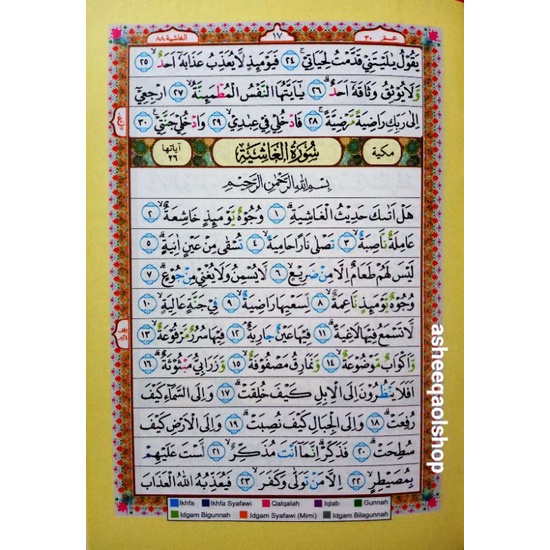 عمّ ٣٠
١٧
الغاشية ٨٨
يَقُوْلُ يٰلَيْتَنِيْ قَدَّمْتُ لِحَيَاتِيْۚ ٢٤ فَيَوْمَىِٕذٍ لَّا يُعَذِّبُ عَذَابَهٗٓ اَحَدٌ ٢٥
وَّلَا يُوْثِقُ وَثَاقَهٗٓ اَحَدٌ ٢٦ يٰٓاَيَّتُهَا النَّفْسُ الْمُطْمَىِٕنَّةُ ٢٧ ارْجِعِيْٓ
اِلٰى رَبِّكِ رَاضِيَةً مَّرْضِيَّةً ٢٨ فَادْخُلِيْ فِيْ عِبٰدِيْ ٢٩ وَادْخُلِيْ جَنَّتِيْ ٣٠
مكية
سُوْرَةُ الْغَاشِيَةِ
آياتها ٢٦
بِسْمِ اللّٰهِ الرَّحْمٰنِ الرَّحِيْمِ
هَلْ اَتٰىكَ حَدِيْثُ الْغَاشِيَةِ ١ وُجُوْهٌ يَّوْمَىِٕذٍ خَاشِعَةٌ ٢
عَامِلَةٌ نَّاصِبَةٌ ٣ تَصْلٰى نَارًا حَامِيَةً ٤ تُسْقٰى مِنْ عَيْنٍ اٰنِيَةٍ ٥
لَيْسَ لَهُمْ طَعَامٌ اِلَّا مِنْ ضَرِيْعٍ ٦ لَّا يُسْمِنُ وَلَا يُغْنِيْ مِنْ جُوْعٍ ٧
وُجُوْهٌ يَّوْمَىِٕذٍ نَّاعِمَةٌ ٨ لِّسَعْيِهَا رَاضِيَةٌ ٩ فِيْ جَنَّةٍ عَالِيَةٍ ١٠
لَّا تَسْمَعُ فِيْهَا لَاغِيَةً ١١ فِيْهَا عَيْنٌ جَارِيَةٌ ١٢ فِيْهَا سُرُرٌ مَّرْفُوْعَةٌ ١٣
وَّاَكْوَابٌ مَّوْضُوْعَةٌ ١٤ وَّنَمَارِقُ مَصْفُوْفَةٌ ١٥ وَّزَرَابِيُّ مَبْثُوْثَةٌ ١٦
اَفَلَا يَنْظُرُوْنَ اِلَى الْاِبِلِ كَيْفَ خُلِقَتْ ١٧ وَاِلَى السَّمَاۤءِ كَيْفَ
رُفِعَتْ ١٨ وَاِلَى الْجِبَالِ كَيْفَ نُصِبَتْ ١٩ وَاِلَى الْاَرْضِ كَيْفَ
سُطِحَتْ ٢٠ فَذَكِّرْ اِنَّمَآ اَنْتَ مُذَكِّرٌ ٢١ لَسْتَ عَلَيْهِمْ
بِمُصَيْطِرٍ ٢٢ اِلَّا مَنْ تَوَلّٰى وَكَفَرَ ٢٣ فَيُعَذِّبُهُ اللّٰهُ الْعَذَابَ
Ikhfa Ikhfa Syafawi Qalqalah Iqlab Gunnah
Idgam Bigunnah Idgam Syafawi (Mimi) Idgam Bilagunnah
asheeqaolshop